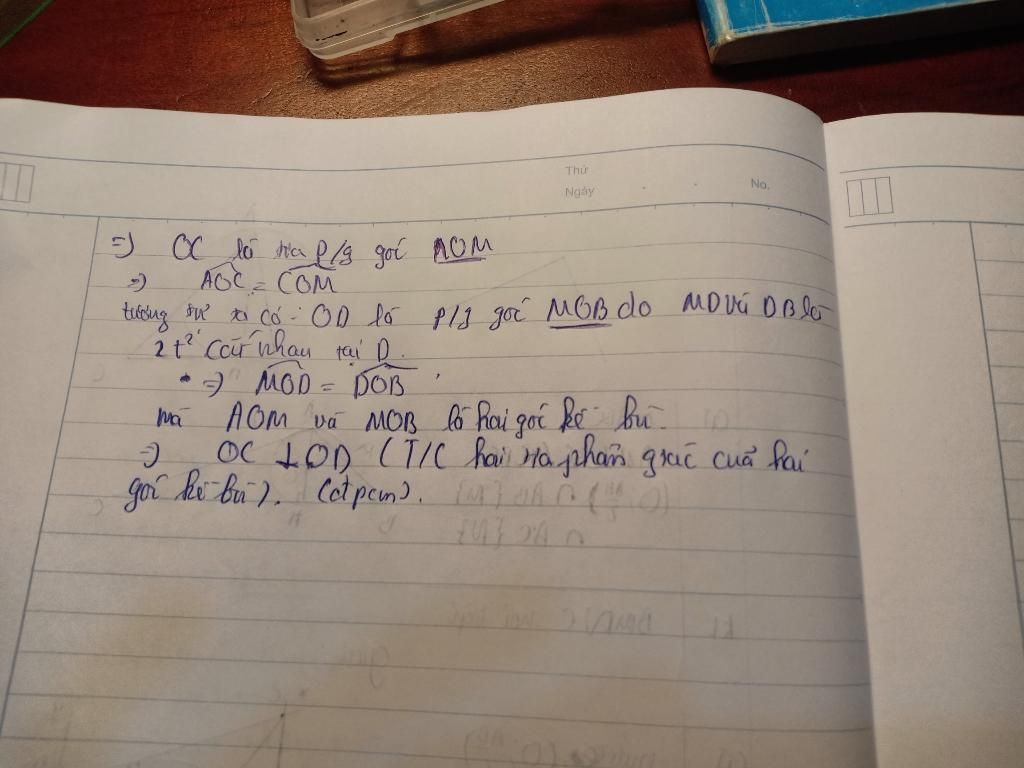 Thứ
Ngày . . No.
=> OC là tia p/g góc AOM
=> AOC = COM
tương tự ta có: OD là p/g góc MOB do MD và DB là
2 t² cắt nhau tại D.
=> MOD = DOB
mà AOM và MOB là hai góc kề bù.
=> OC ⊥ OD (T/C hai tia phân giác của hai
góc kề bù). (đpcm).